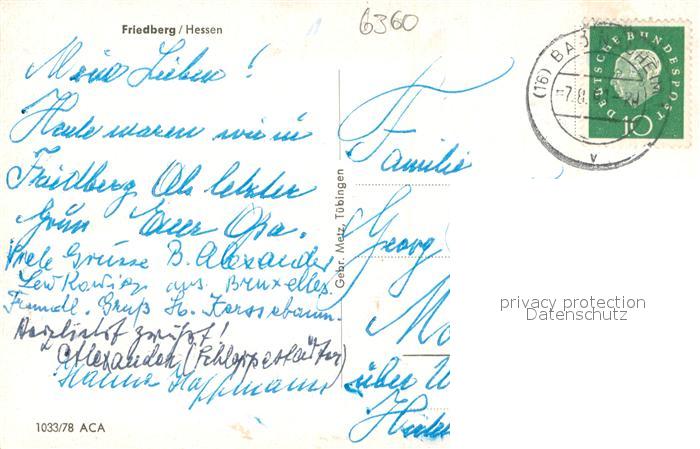 Friedberg / Hessen
6360
Meine Lieben!
Heute waren wir in
Friedberg Als letzter
Gruß Euer Opa.
Viele Grüsse B. Alexander
Lewkowicz aus Bruxelles.
Freundl. Gruß
Herzlichst grüßt!
Alexander
Hanna Hoffmann
1033/78 ACA
Gebr. Metz, Tübingen
(16) BAD
-7.8.
v
DEUTSCHE BUNDESPOST
10
Familie
Georg
über
privacy protection
Datenschutz